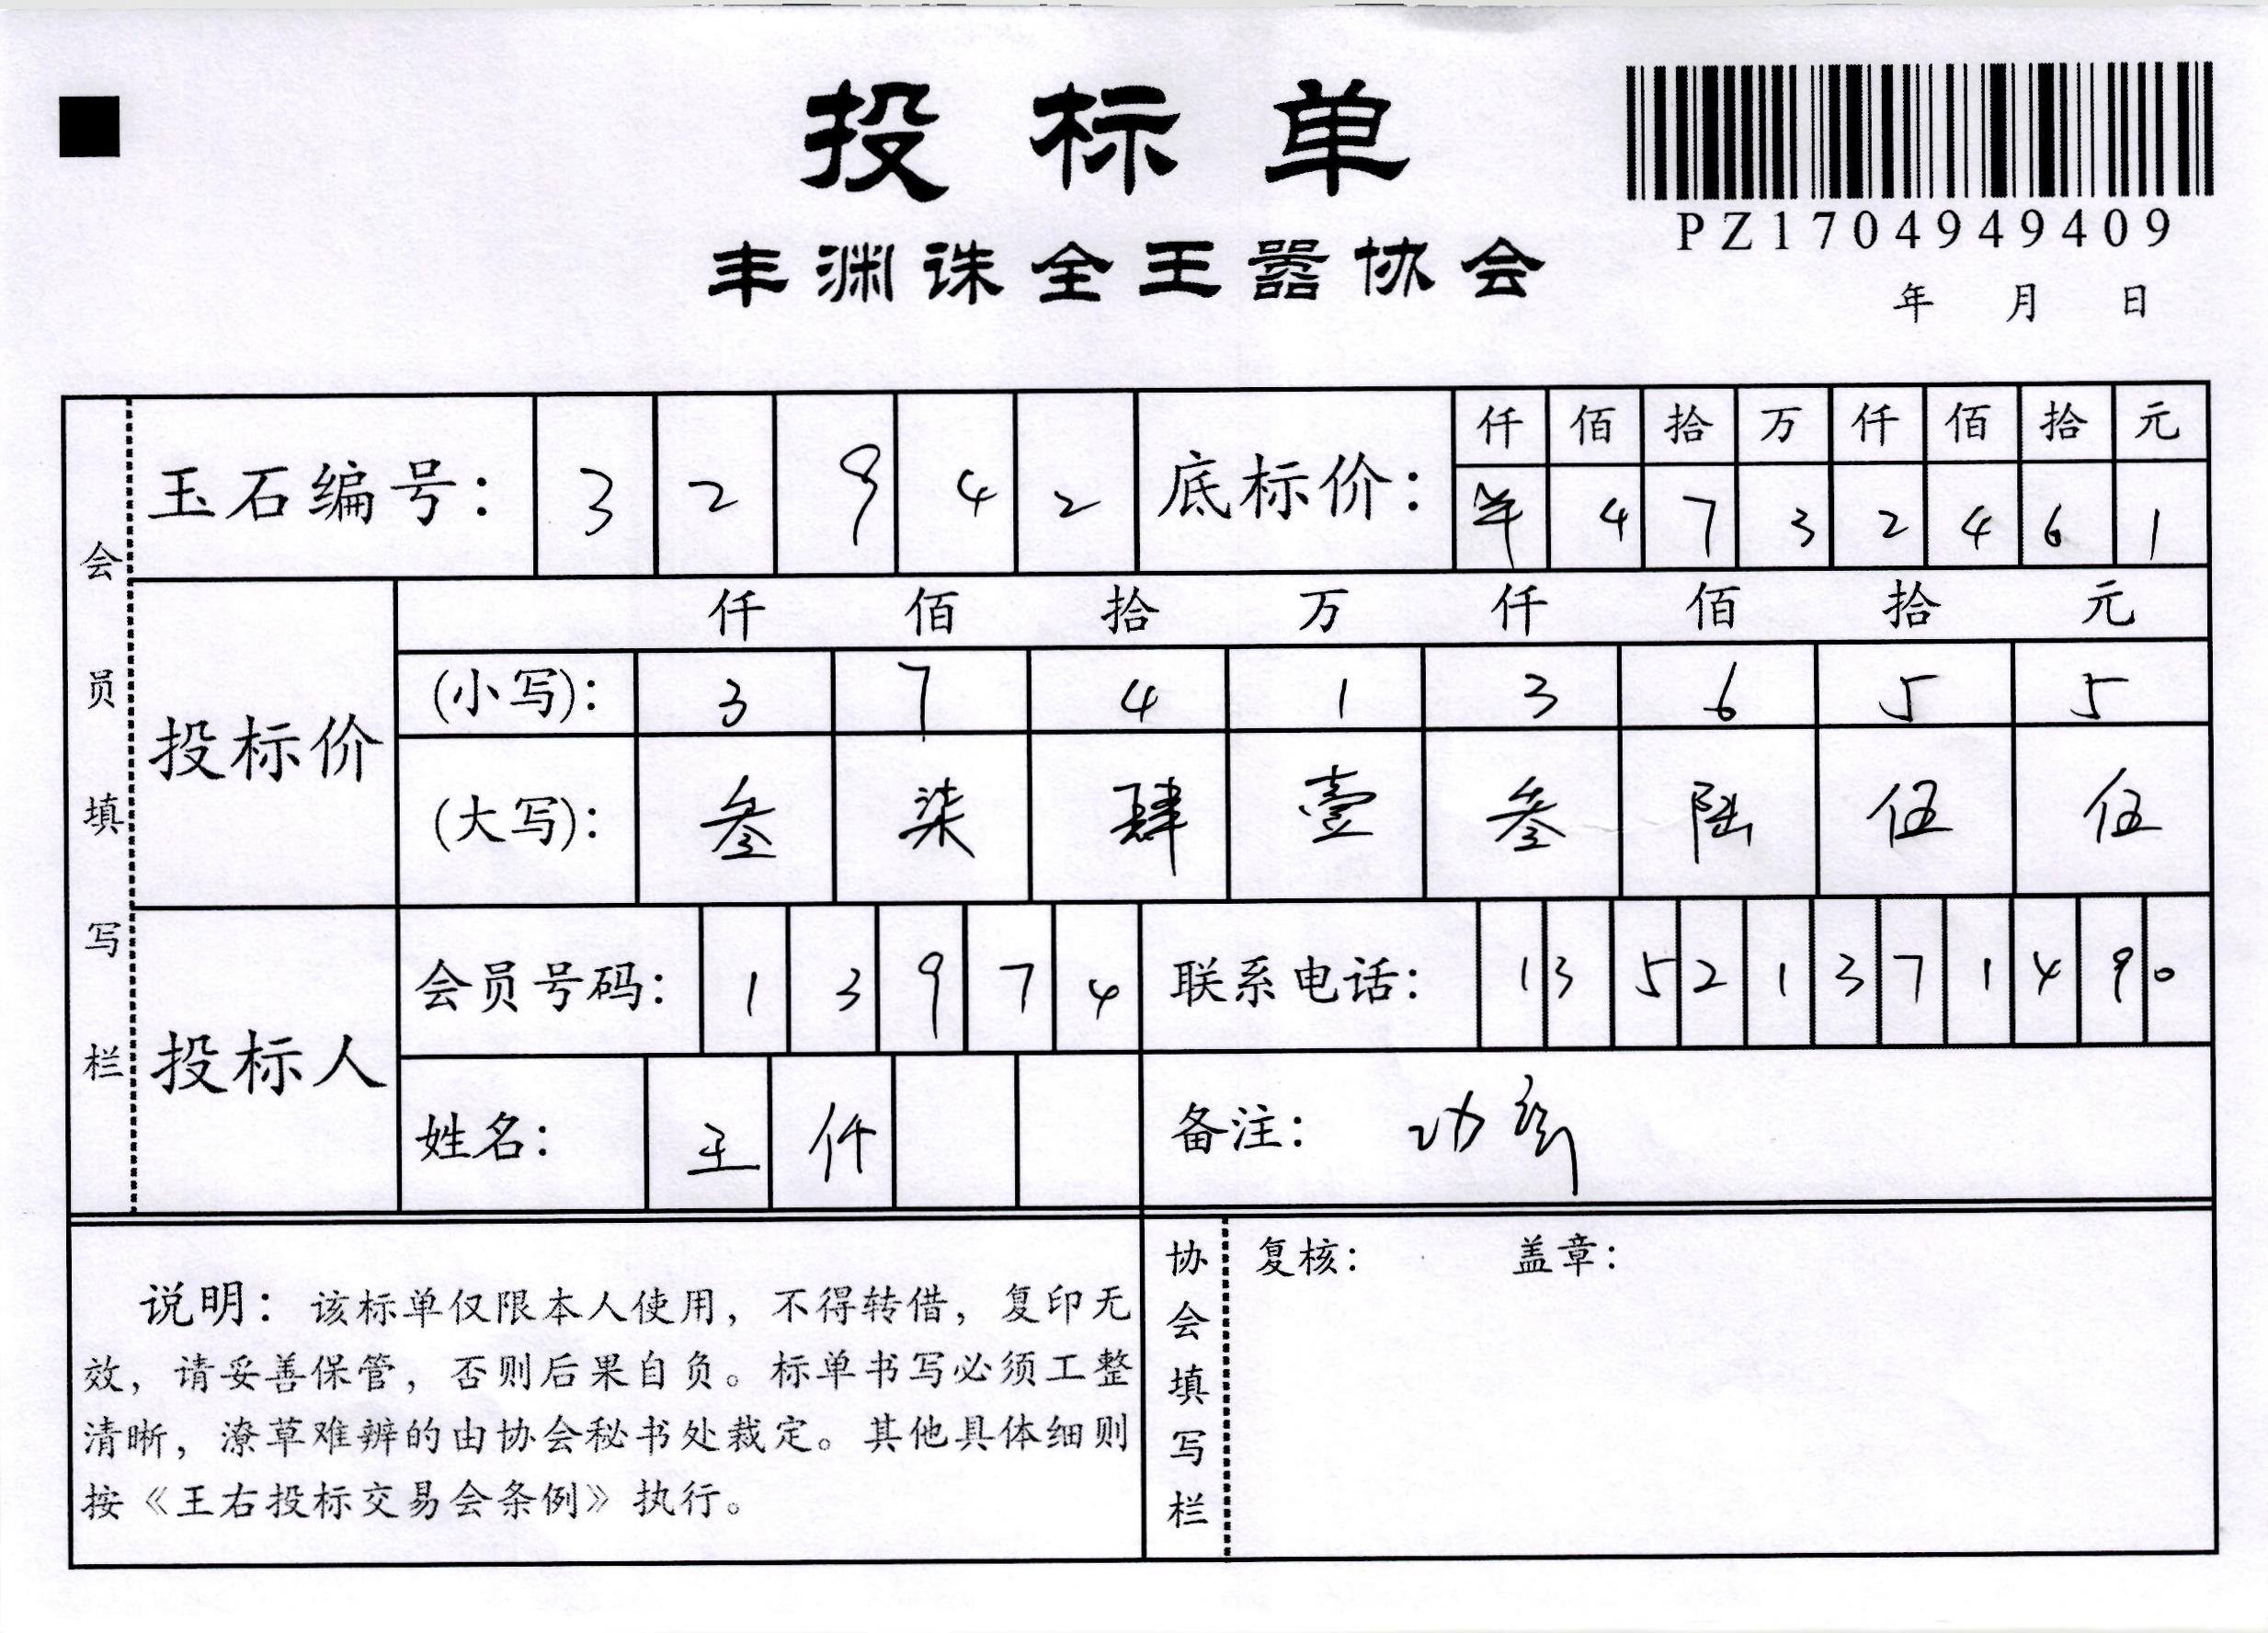 投标单
PZ1704949409
丰渊诛全王嚣协会
年 月 日
会员填写栏
玉石编号: 3 2 9 4 2
底标价: 仟 佰 拾 万 仟 佰 拾 元
4 7 3 2 4 6 1
投标价
仟 佰 拾 万 仟 佰 拾 元
(小写): 3 7 4 1 3 6 5 5
(大写): 叁 柒 肆 壹 叁 陆 伍 伍
投标人
会员号码: 1 3 9 7 4
联系电话: 1 3 5 2 1 3 7 1 4 9 0
姓名: 王 仟
备注:
说明: 该标单仅限本人使用, 不得转借, 复印无
效, 请妥善保管, 否则后果自负。标单书写必须工整
清晰, 潦草难辨的由协会秘书处裁定。其他具体细则
按《王右投标交易会条例》执行。
协会填写栏
复核: 盖章: